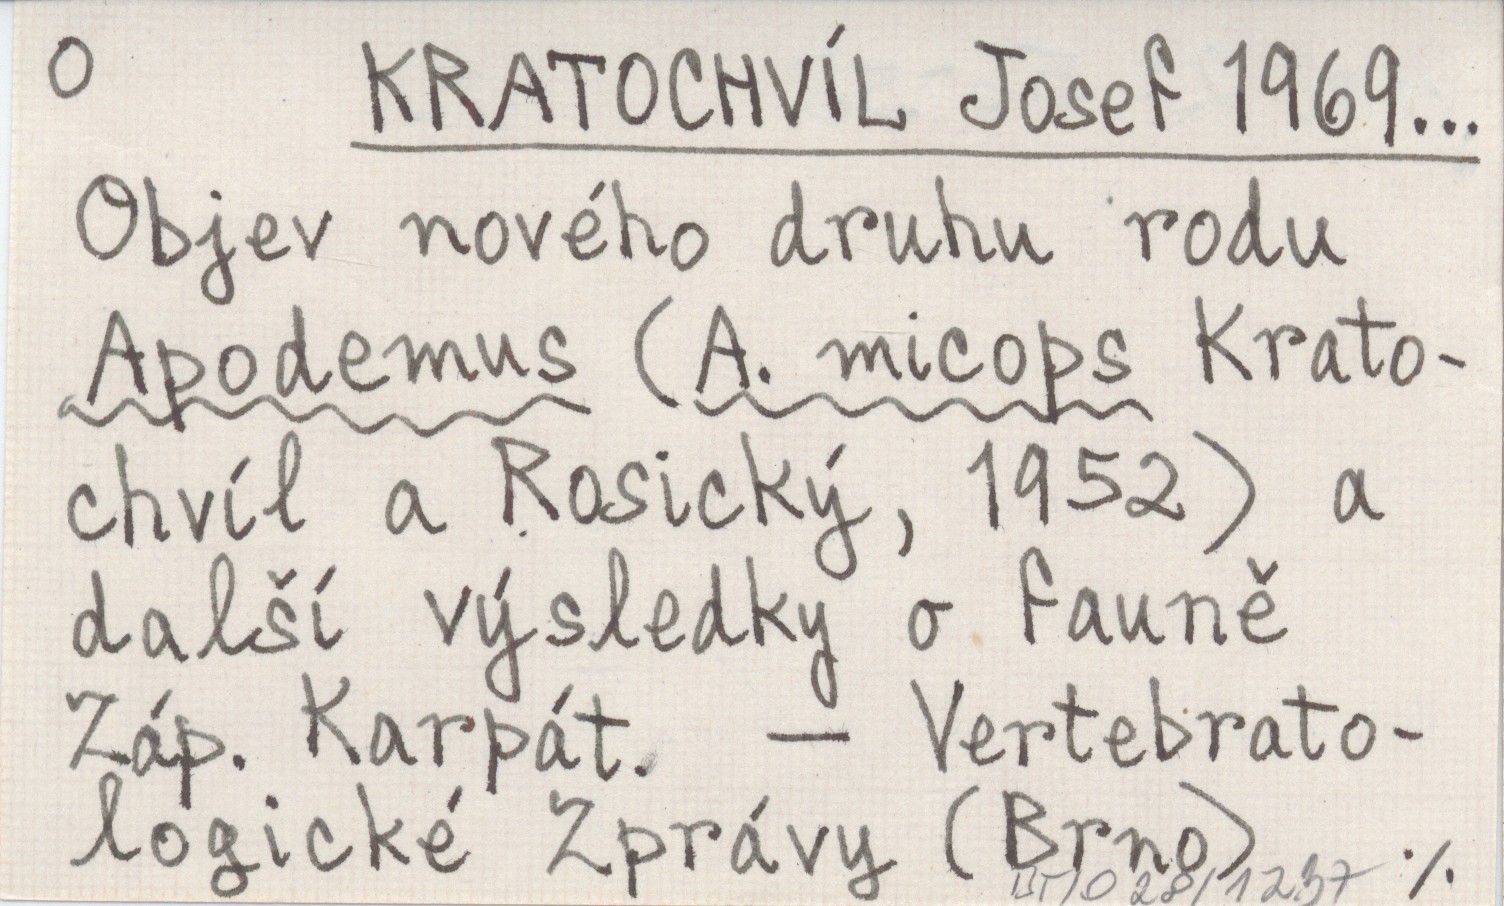 O KRATOCHVÍL Josef 1969...
Objev nového druhu rodu
Apodemus (A. micops Krato-
chvíl a Rosický, 1952) a
další výsledky o fauně
Záp. Karpát. — Vertebrato-
logické Zprávy (Brno) ./.
28/1237